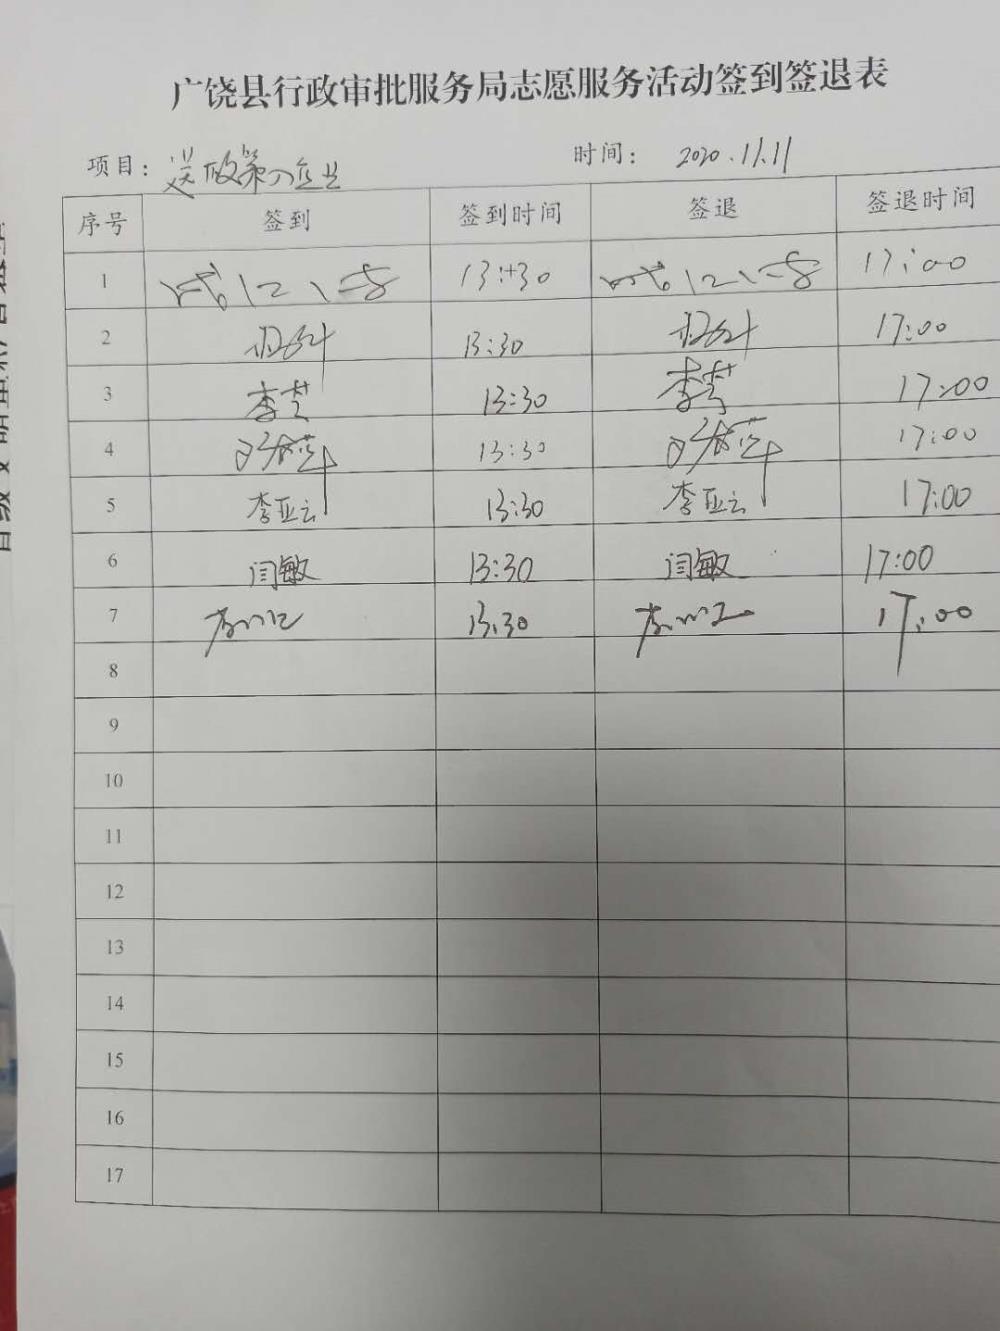 广饶县行政审批服务局志愿服务活动签到签退表
项目：送政策入企业 时间：2020.11.11
序号 签到 签到时间 签退 签退时间
1 13:30 17:00
2 13:30 17:00
3 李芹 13:30 李芹 17:00
4 13:30 17:00
5 李亚云 13:30 李亚云 17:00
6 闫敏 13:30 闫敏 17:00
7 13:30 17:00
8
9
10
11
12
13
14
15
16
17